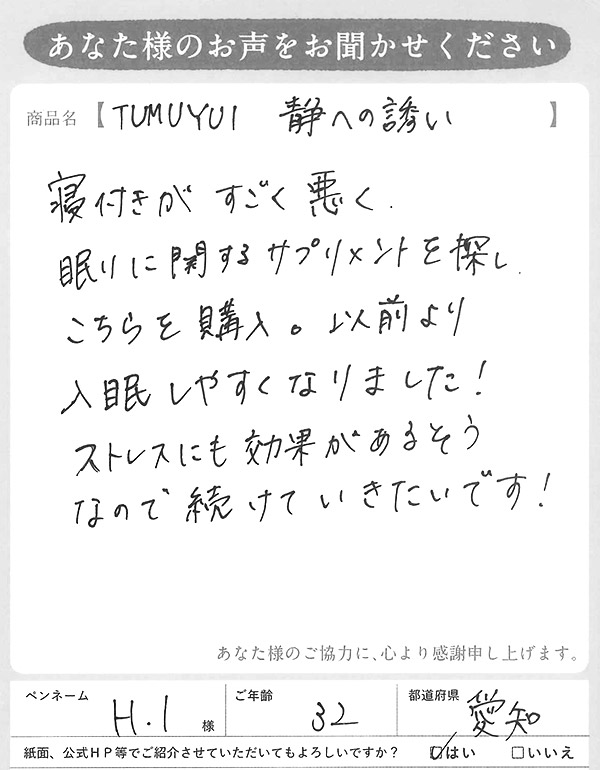 あなた様のお声をお聞かせください
商品名【TUMUYUI 静への誘い】
寝付きがすごく悪く、
眠りに関するサプリメントを探し、
こちらを購入。以前より
入眠しやすくなりました!
ストレスにも効果があるそう
なので続けていきたいです!
あなた様のご協力に、心より感謝申し上げます。
ペンネーム H.I 様 ご年齢 32 都道府県 愛知
紙面、公式HP等でご紹介させていただいてもよろしいですか? ☑はい □いいえ